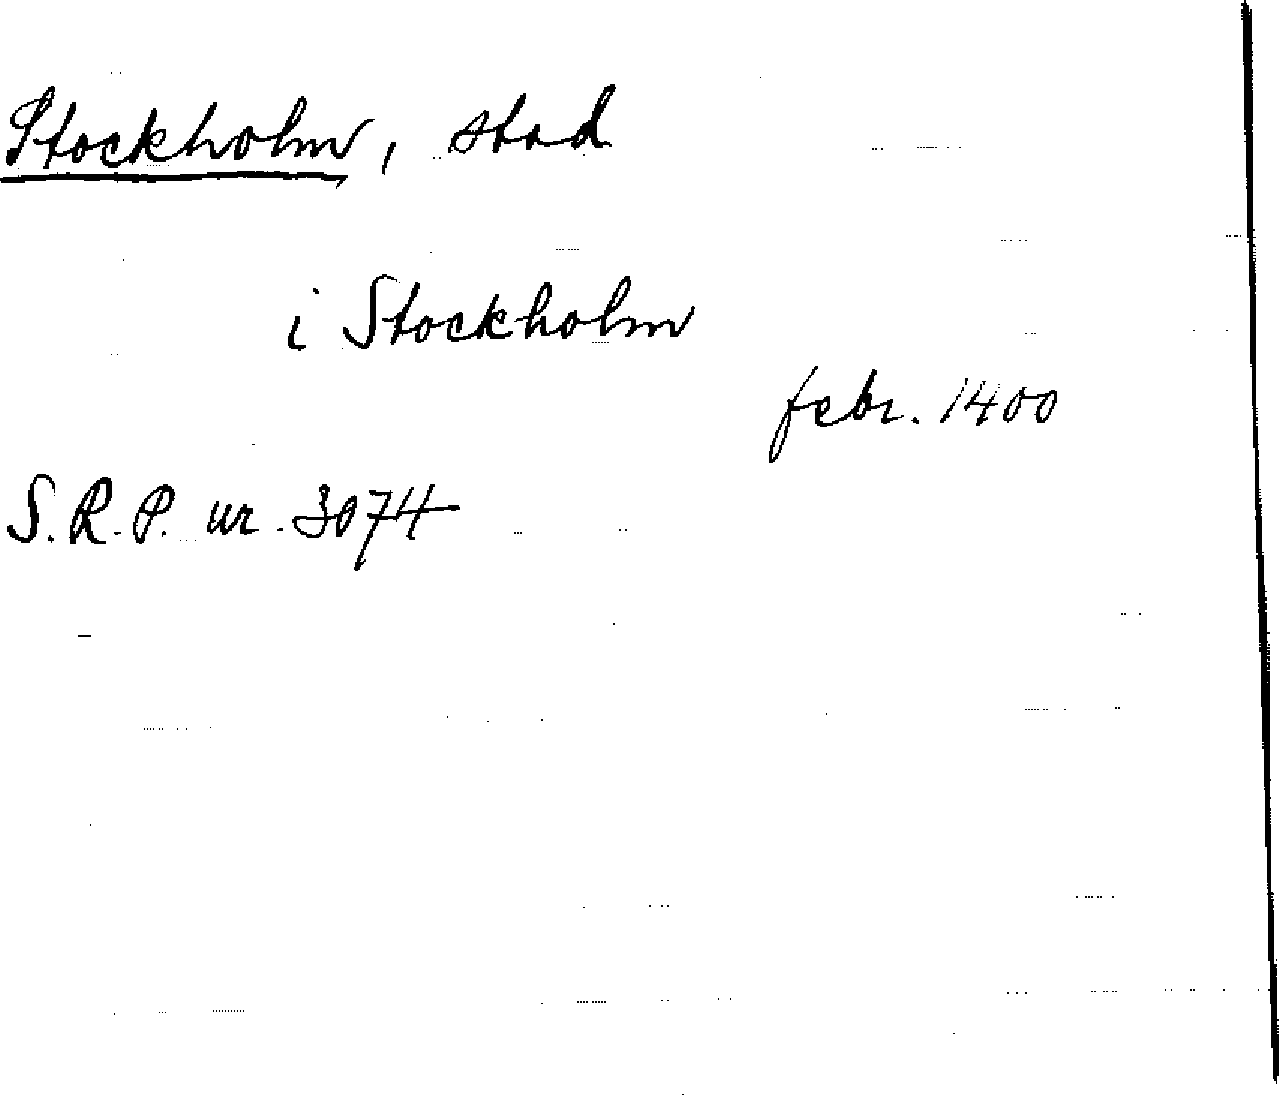 Stockholm, stad
i Stockholm
febr. 1400
S.R.P. nr. 3074